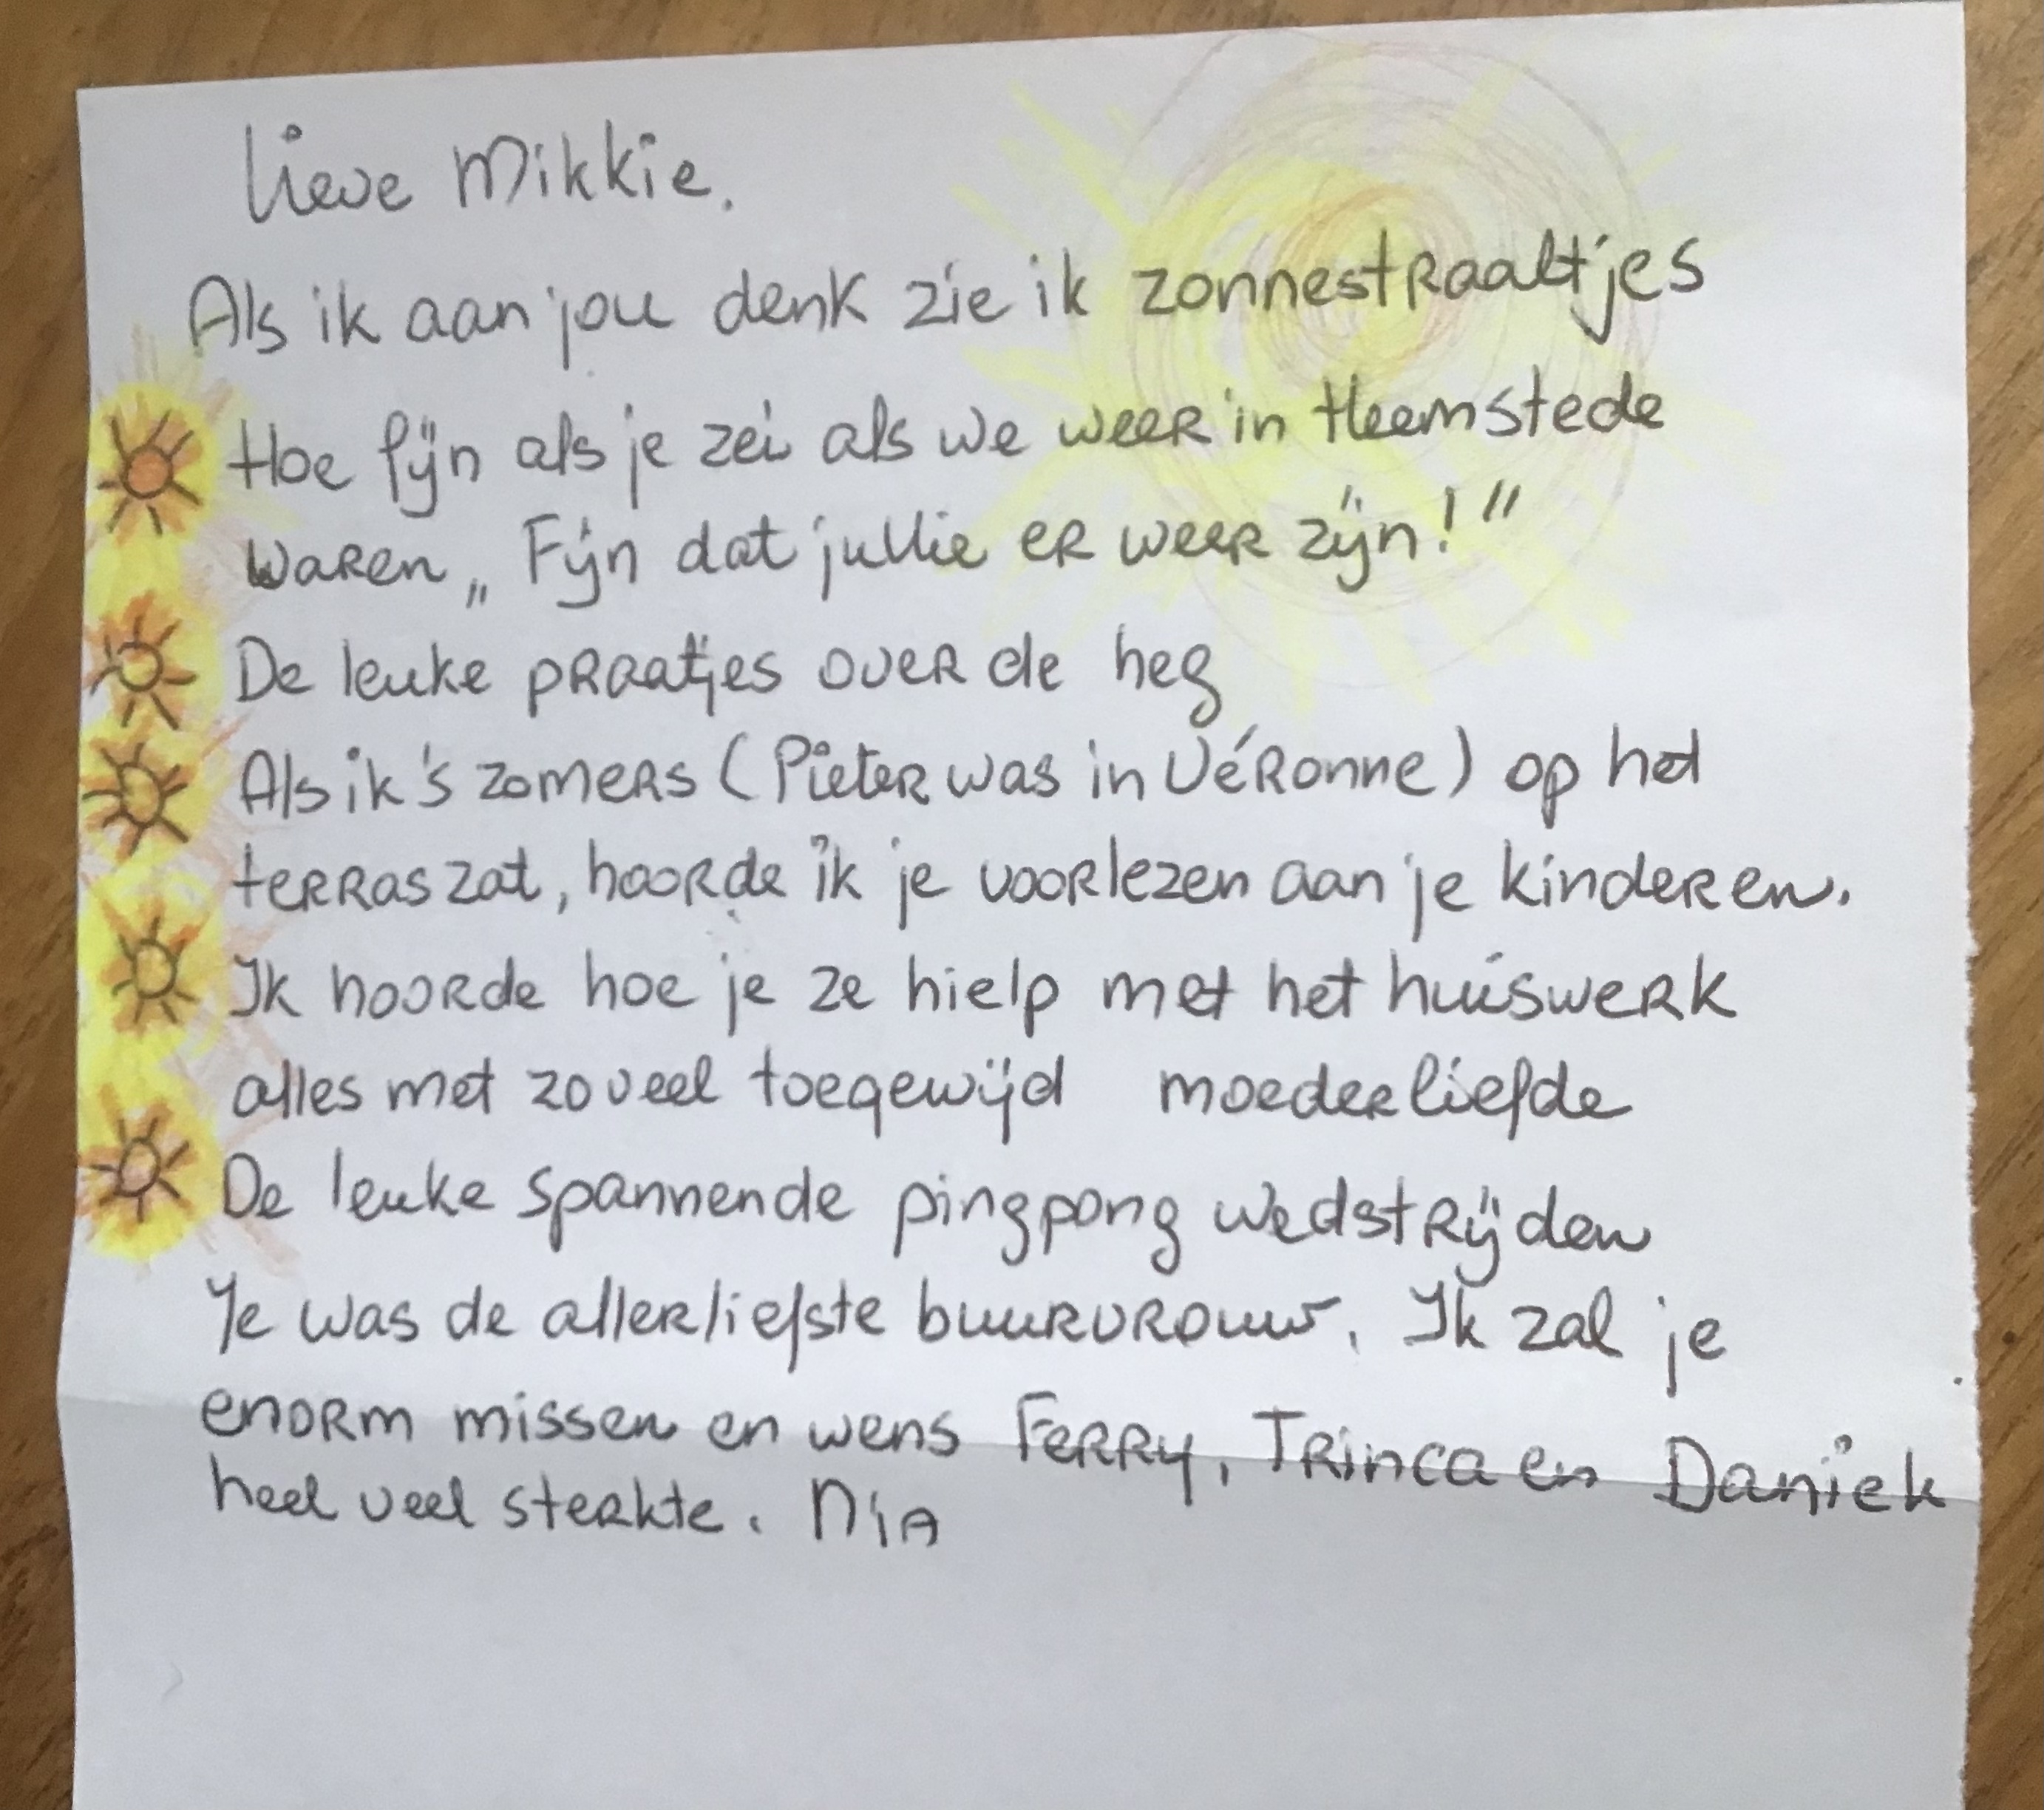 Lieve Mikkie.
Als ik aan jou denk zie ik zonnestraaltjes
Hoe fijn als je zei als we weer in Heemstede
waren „Fijn dat jullie er weer zijn!"
De leuke praatjes over de heg
Als ik 's zomers (Pieter was in Véronne) op het
terras zat, hoorde ik je voorlezen aan je kinderen.
Ik hoorde hoe je ze hielp met het huiswerk
alles met zoveel toegewijd moederliefde
De leuke spannende pingpong wedstrijden
Je was de allerliefste buurvrouw. Ik zal je
enorm missen en wens Ferry, Trinca en Daniek
heel veel sterkte. Nia